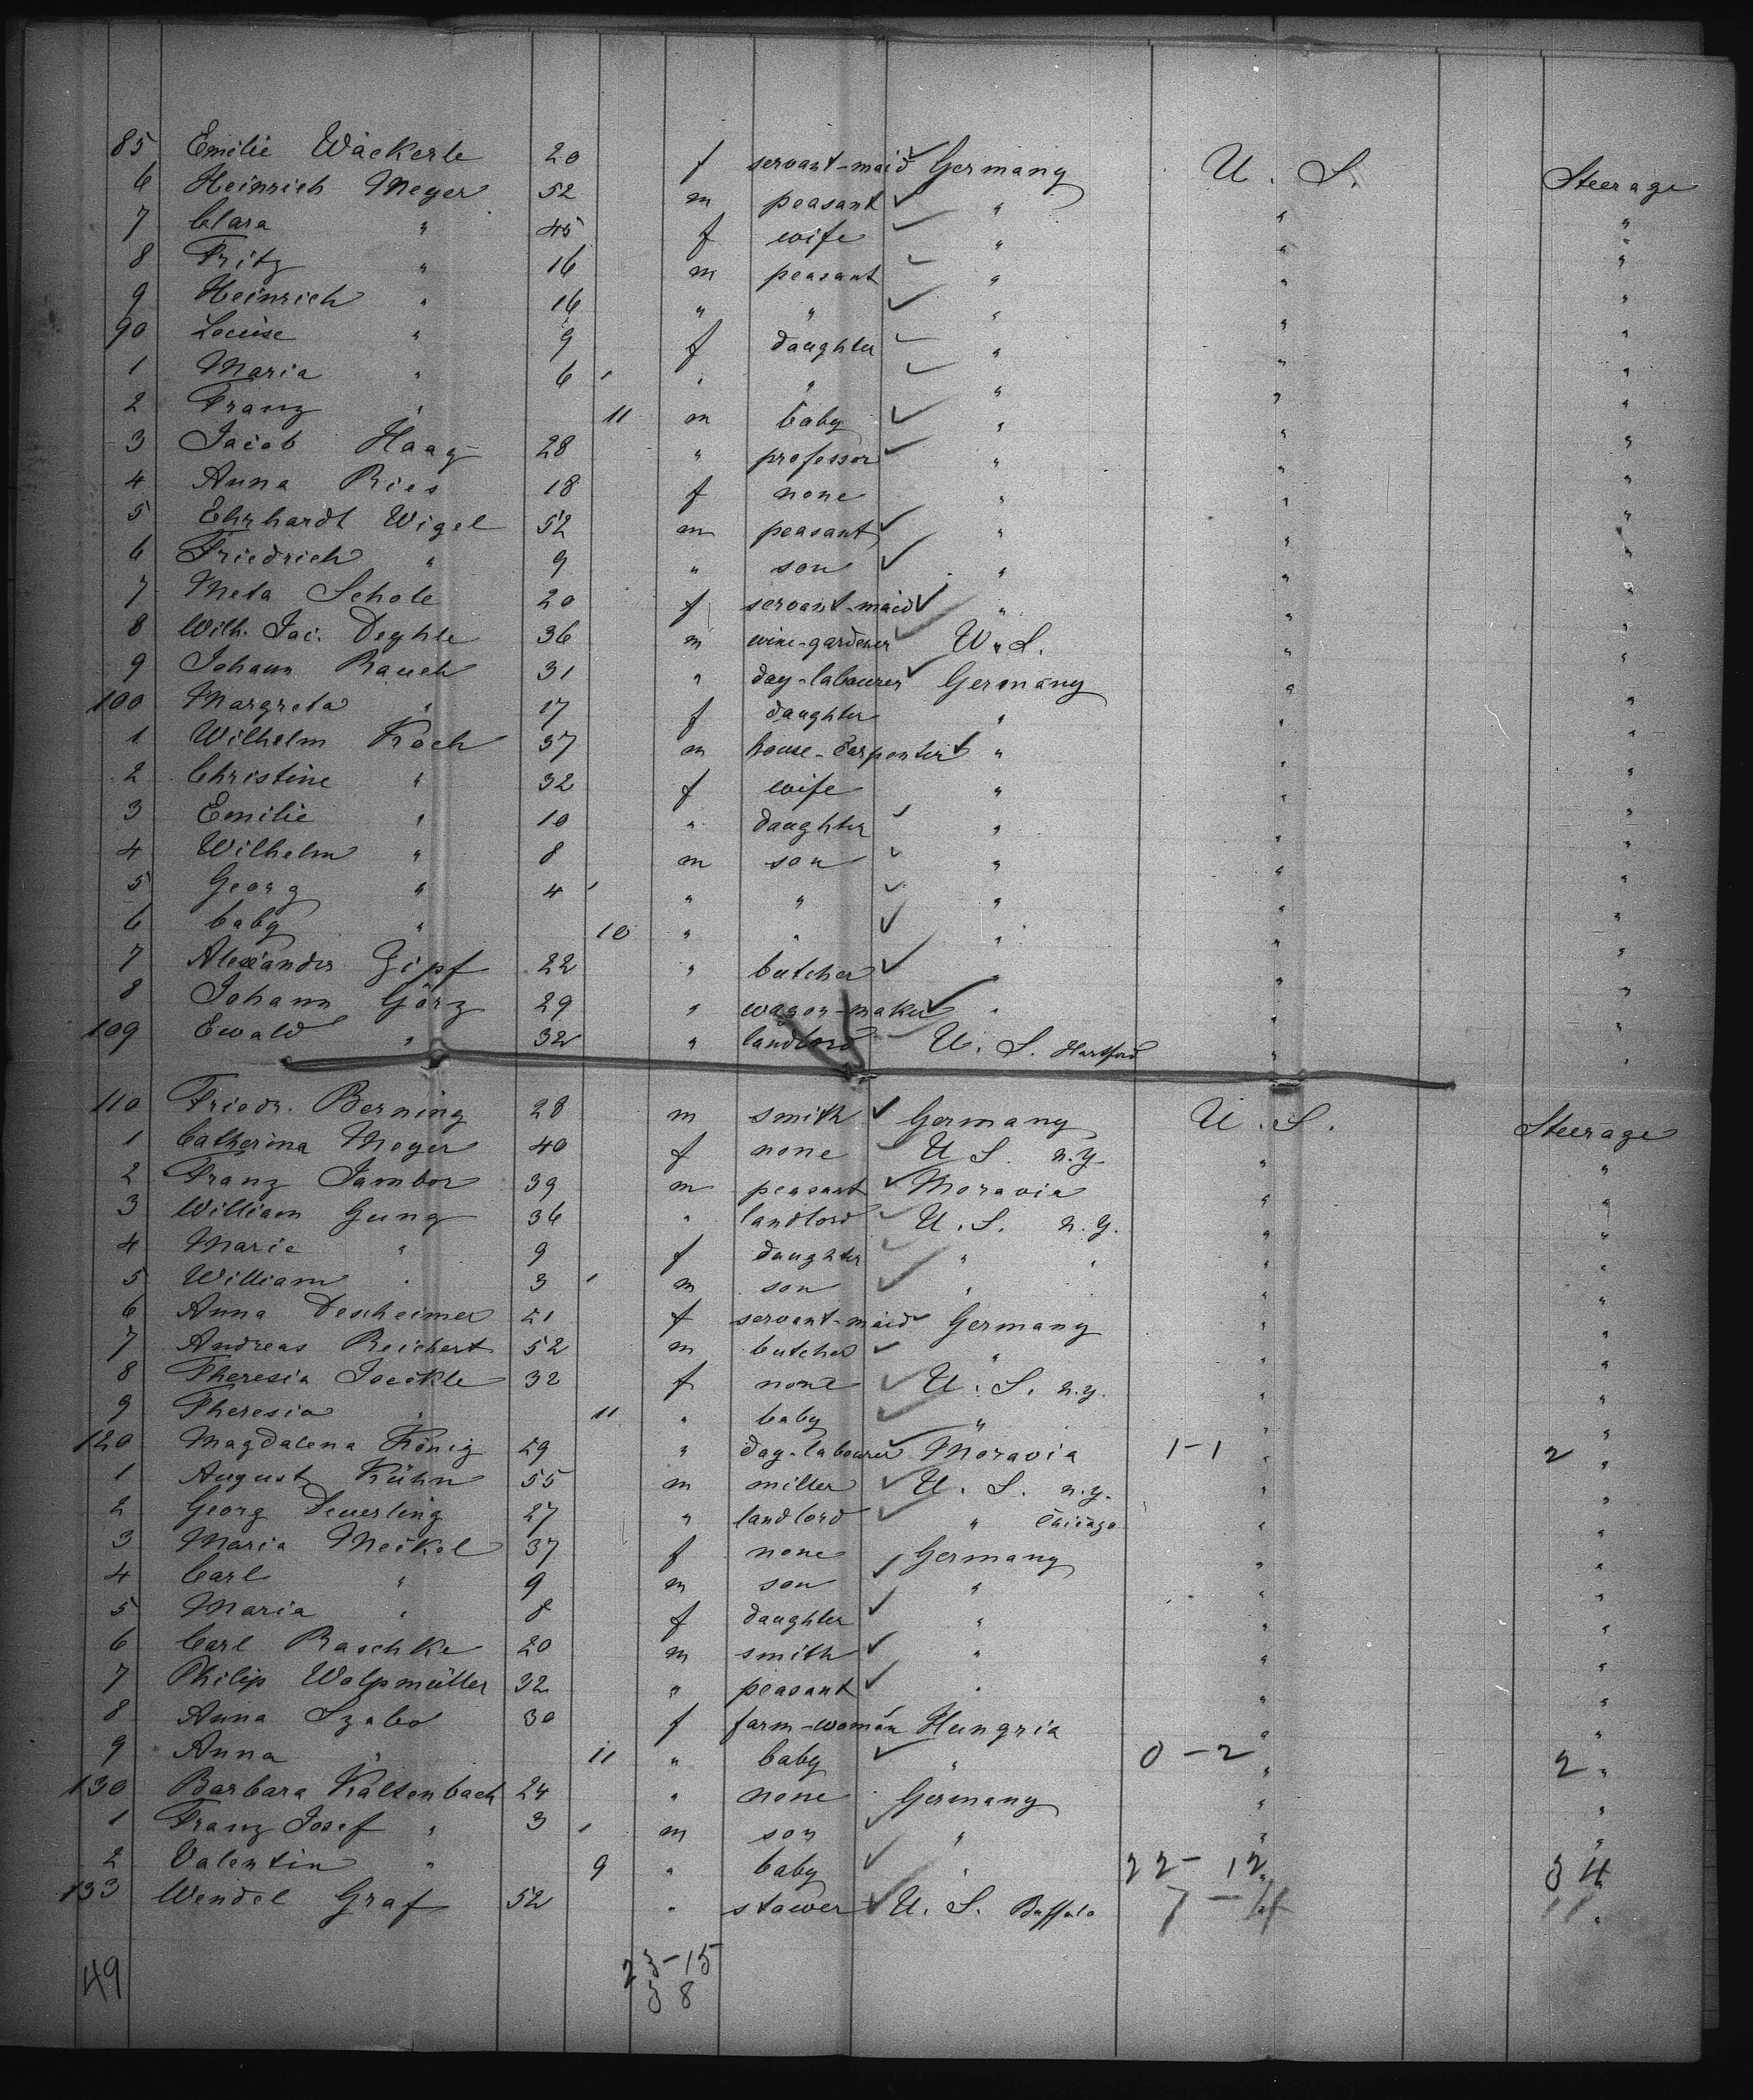 85 Emilie Wäckerle 20 f servant-maid Germany U. S. Steerage
6 Heinrich Meyer 52 m peasant " " "
7 Clara " 45 f wife " " "
8 Fritz " 16 m peasant " " "
9 Heinrich " 16 " " " " "
90 Louise " 9 f daughter " " "
1 Maria " 6 " " " " "
2 Franz " 11 m baby " " "
3 Jacob Haag 28 " professor " " "
4 Anna Ries 18 f none " " "
5 Ehrhardt Wigel 52 m peasant " " "
6 Friedrich " 9 " son " " "
7 Meta Schole 20 f servant-maid " " "
8 Wilh. Jac. Deyhle 36 m wine-gardener U. S. " "
9 Johann Rauch 31 " day-labourer Germany " "
100 Margreta " 17 f daughter " " "
1 Wilhelm Koch 37 m house-carpenter " " "
2 Christine " 32 f wife " " "
3 Emilie " 10 " daughter " " "
4 Wilhelm " 8 m son " " "
5 Georg " 4 " " " " "
6 baby " 10 " " " " "
7 Alexander Gipf 22 " butcher " " "
8 Johann Görz 29 " wagon-maker " " "
109 Ewald " 32 " landlord U. S. Hartford " "
110 Friedr. Berning 28 m smith Germany U. S. Steerage
1 Catherina Meyer 40 f none U. S. n.y. " "
2 Franz Jambor 39 m peasant Moravia " "
3 William Gung 36 " landlord U. S. n.y. " "
4 Marie " 9 f daughter " " " "
5 William " 3 m son " " "
6 Anna Descheimer 21 f servant-maid Germany " "
7 Andreas Reichert 52 m butcher " " "
8 Theresia Joeckle 32 f none U. S. n.y. " "
9 Theresia " 11 " baby " " "
120 Magdalena König 29 " day-labourer Moravia 1-1 " 2 "
1 August Kühn 55 m miller U. S. n.y. " "
2 Georg Deuerling 27 " landlord " Chicago " "
3 Maria Meikel 37 f none Germany " "
4 Carl " 9 m son " " "
5 Maria " 8 f daughter " " "
6 Carl Raschke 20 m smith " " "
7 Philip Wolpmüller 32 " peasant " " "
8 Anna Szabo 30 f farm-woman Hungria " "
9 Anna " 11 " baby " 0-2 " 2 "
130 Barbara Kaltenbach 24 " none Germany " "
1 Franz Josef " 3 m son " " "
2 Valentin " 9 " baby " 22-12 " 34 "
133 Wendel Graf 52 " stawer U. S. Buffalo 7-4 " 11 "
49 23-15
38